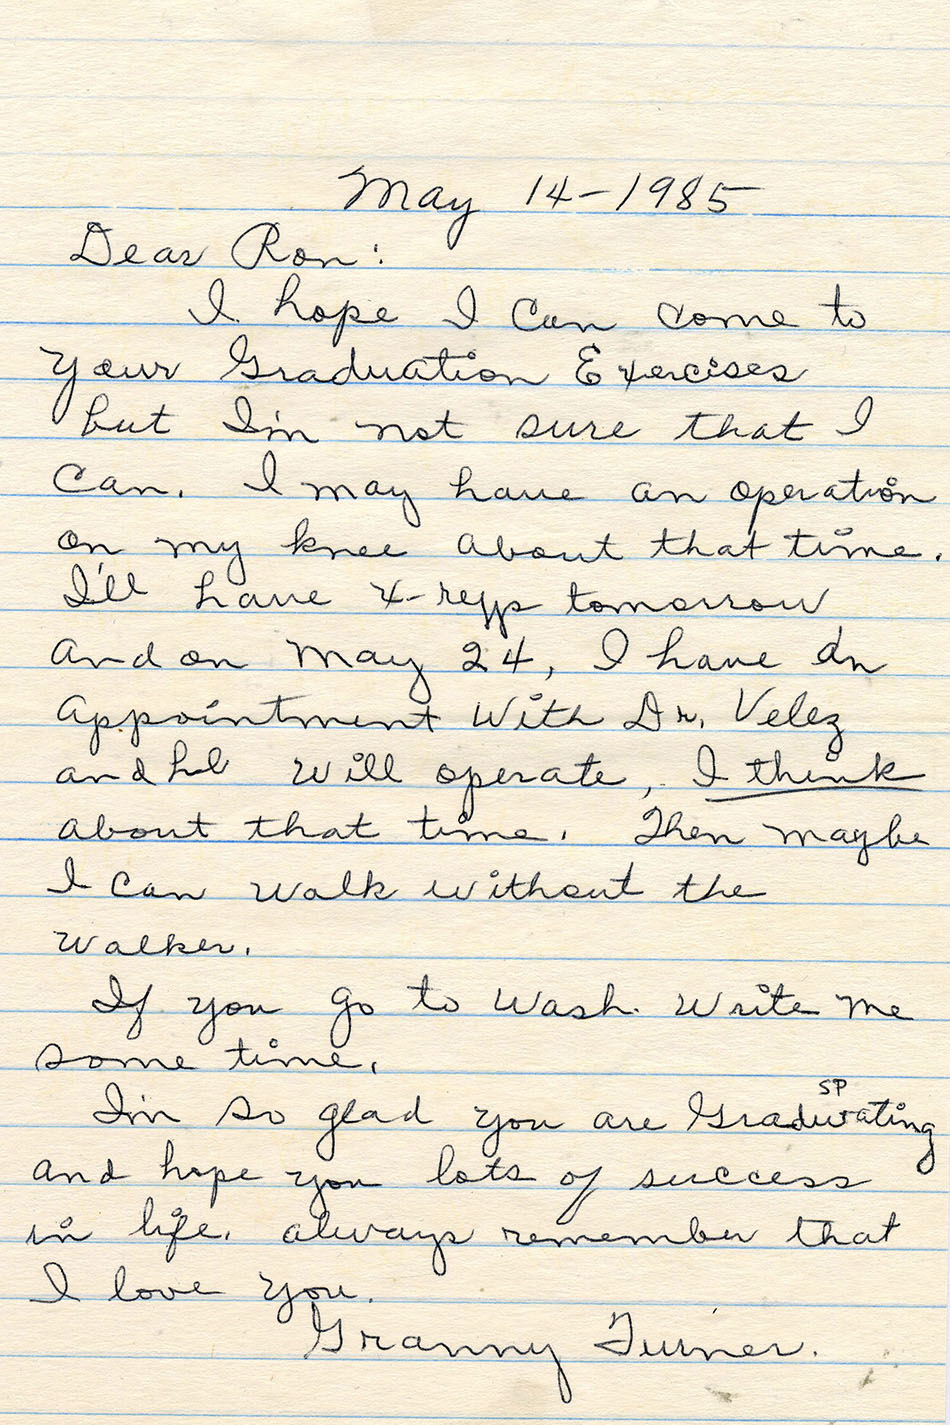 May 14-1985
Dear Ron:
I hope I can come to
your Graduation Exercises
but I'm not sure that I
can. I may have an operation
on my knee about that time.
I'll have X-rays tomorrow
and on May 24, I have an
appointment with Dr. Velez
and he will operate, I think
about that time. Then maybe
I can walk without the
walker.
If you go to Wash. write me
some time.
SP
I'm so glad you are Graduating
and hope you lots of success
in life. always remember that
I love you.
Granny Turner.